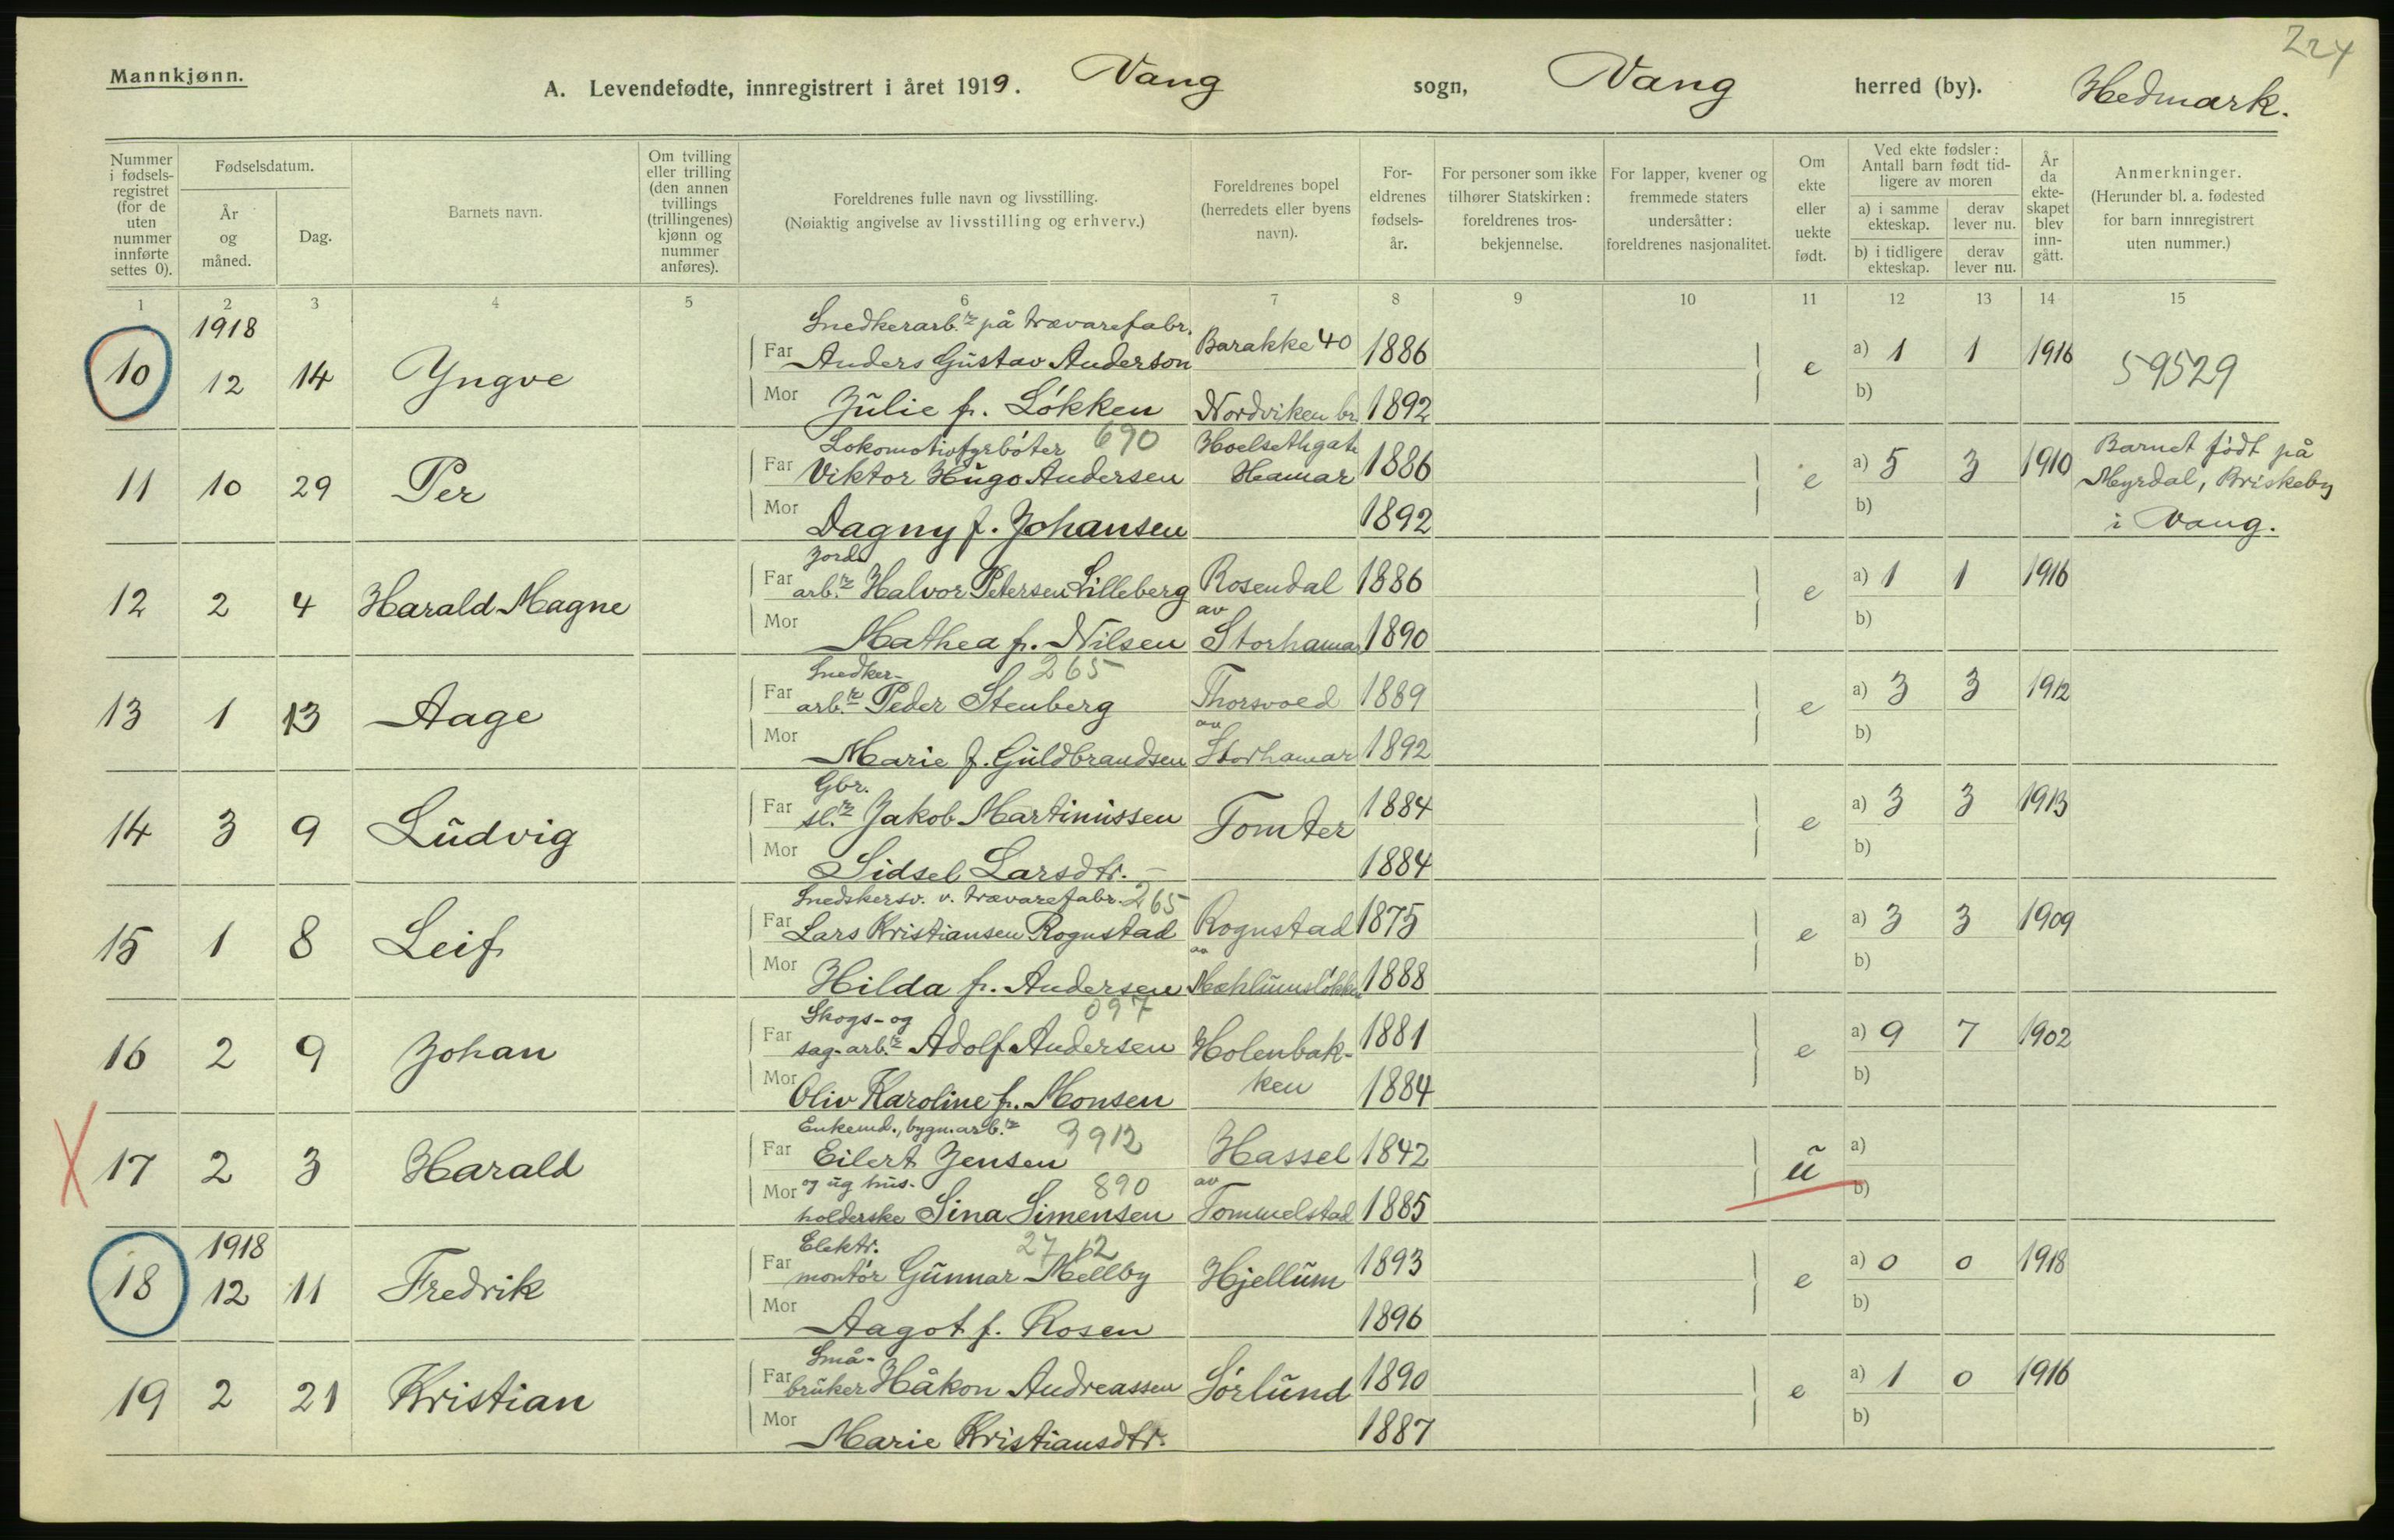 224
Mannkjønn.
A. Levendefødte, innregistrert i året 1919. Vang sogn, Vang herred (by). Hedmark.
Nummer i fødsels-registret (for de uten nummer innførte settes 0).
Fødselsdatum.
År og måned.
Dag.
Barnets navn.
Om tvilling eller trilling (den annen tvillings (trillingenes) kjønn og nummer anføres).
Foreldrenes fulle navn og livsstilling.
(Nøiaktig angivelse av livsstilling og erhverv.)
Foreldrenes bopel (herredets eller byens navn).
For-eldrenes fødsels-år.
For personer som ikke tilhører Statskirken: foreldrenes tros-bekjennelse.
For lapper, kvener og fremmede staters undersåtter: foreldrenes nasjonalitet.
Om ekte eller uekte født.
Ved ekte fødsler: Antall barn født tid-ligere av moren
a) i samme ekteskap.
derav lever nu.
b) i tidligere ekteskap.
derav lever nu.
År da ekte-skapet blev inn-gått.
Anmerkninger.
(Herunder bl. a. fødested for barn innregistrert uten nummer.)
1 2 3 4 5 6 7 8 9 10 11 12 13 14 15
1918 Snedkerarb.r på trævarefabr.
10 12 14 Yngve Far Anders Gustav Anderson Barakke 40 1886 e a) 1 1 1916 59529
b)
Mor Julie f. Løkken Nordviken br. 1892
Lokomotivfyrbøter 690 Hoelsethgate
11 10 29 Per Far Viktor Hugo Andersen Hamar 1886 e a) 5 3 1910 Barnet født på
Myrdal, Briskeby
i Vang.
b)
Mor Dagny f. Johansen 1892
Jord-
12 2 4 Harald Magne Far arb.r Halvor Petersen Lilleberg Rosendal 1886 e a) 1 1 1916
b)
Mor Mathea f. Nilsen av Storhamar 1890
Snedker- 265
13 1 13 Aage Far arb.r Peder Stenberg Thorsvoed 1889 e a) 3 3 1912
b)
Mor Marie f. Guldbrandsen av Storhamar 1892
Gbr.
14 3 9 Ludvig Far sl.r Jakob Martinussen Tomter 1884 e a) 3 3 1913
b)
Mor Sidsel Larsdtr. - 1884
Snedskersv. v. trævarefabr. 265
15 1 8 Leif Far Lars Kristiansen Rognstad Rognstad 1875 e a) 3 3 1909
b)
Mor Hilda f. Andersen av Mæhlumsløkken 1888
Skogs- og 097
16 2 9 Johan Far sag-arb.r Adolf Andersen Holenbak- 1881 e a) 9 7 1902
b)
Mor Oliv Karoline f. Monsen ken 1884
Enkemd., bygn.arb.r 3912
X 17 2 3 Harald Far Eilert Jensen Hassel 1842 u a)
b)
Mor og ug hus- 890 av
holderske Sina Simensen Tommelstad 1885
1918 Elektr. 27 12
18 12 11 Fredrik Far montør Gunnar Mellby Hjellum 1893 e a) 0 0 1918
b)
Mor Aagot f. Rosen 1896
Små-
19 2 21 Kristian Far bruker Håkon Andreassen Sørlund 1890 e a) 1 0 1916
b)
Mor Marie Kristiansdtr. 1887